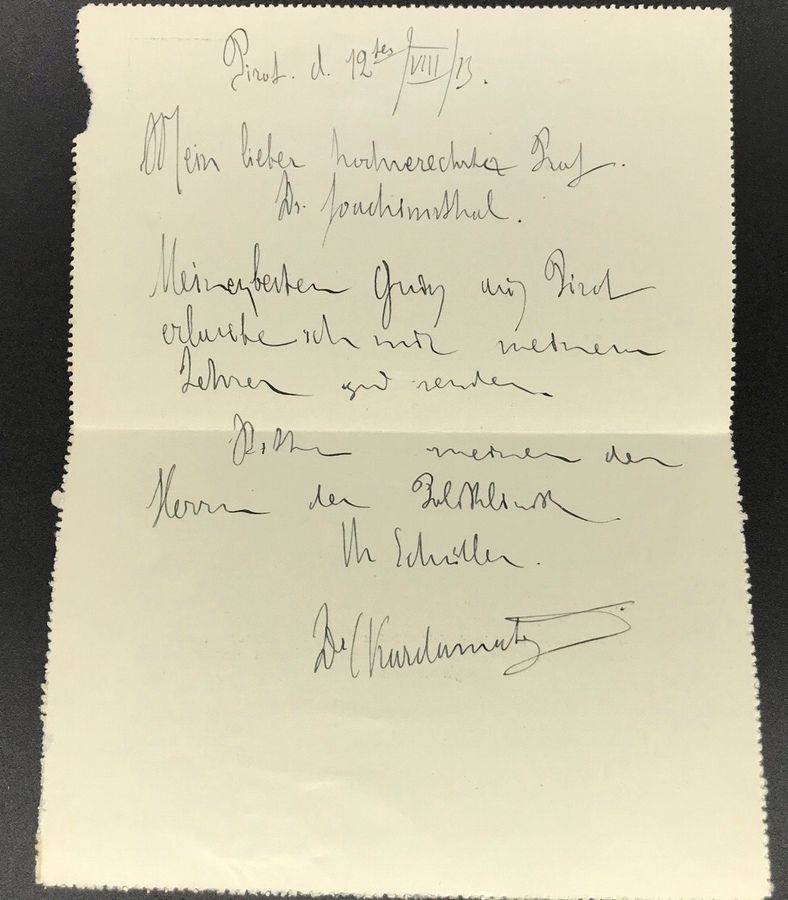 Pirot. d. 12tes/VIII/13.
Mein lieber hochverechrter Prof.
Dr. Joachimsthal.
Meinen besten Gruß aus Pirot
erlaube ich mir meinem
Lehrer zu senden.
meinen den
Herrn der Poliklinik
Ihr Schüller.
Dr